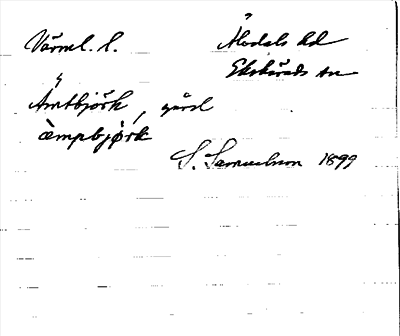 Värml. l. Älvdals hd
Ekshärads sn
Ämtbjörk, gård
æ̀mpbjørk
S. Samuelsson 1899